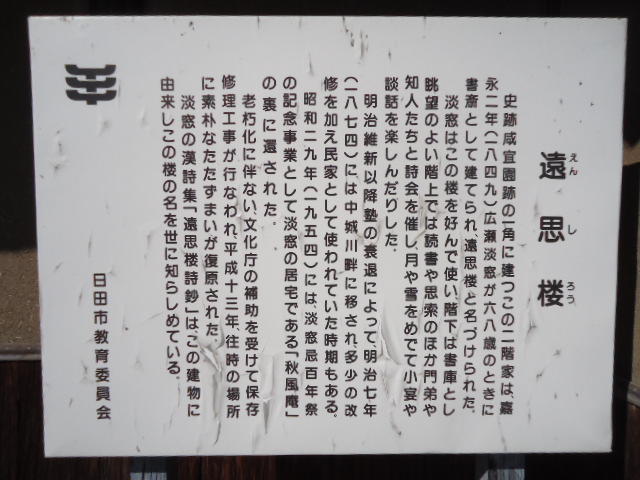 遠思楼
えん し ろう
史跡咸宜園跡の一角に建つこの二階家は、嘉
永二年(一八四九)広瀬淡窓が六八歳のときに
書斎として建てられ、遠思楼と名づけられた。
淡窓はこの楼を好んで使い、階下は書庫とし
眺望のよい階上では読書や思索のほか門弟や
知人たちと詩会を催し、月や雪をめでて小宴や
談話を楽しんだりした。
明治維新以降塾の衰退によって、明治七年
(一八七四)には中城川畔に移され、多少の改
修を加え民家として使われていた時期もある。
昭和二九年(一九五四)には、淡窓忌百年祭
の記念事業として淡窓の居宅である「秋風庵」
の裏に還された。
老朽化に伴ない文化庁の補助を受けて保存
修理工事が行なわれ、平成十三年、往時の場所
に素朴なたたずまいが復原された。
淡窓の漢詩集「遠思楼詩鈔」は、この建物に
由来しこの楼の名を世に知らしめている。
日田市教育委員会